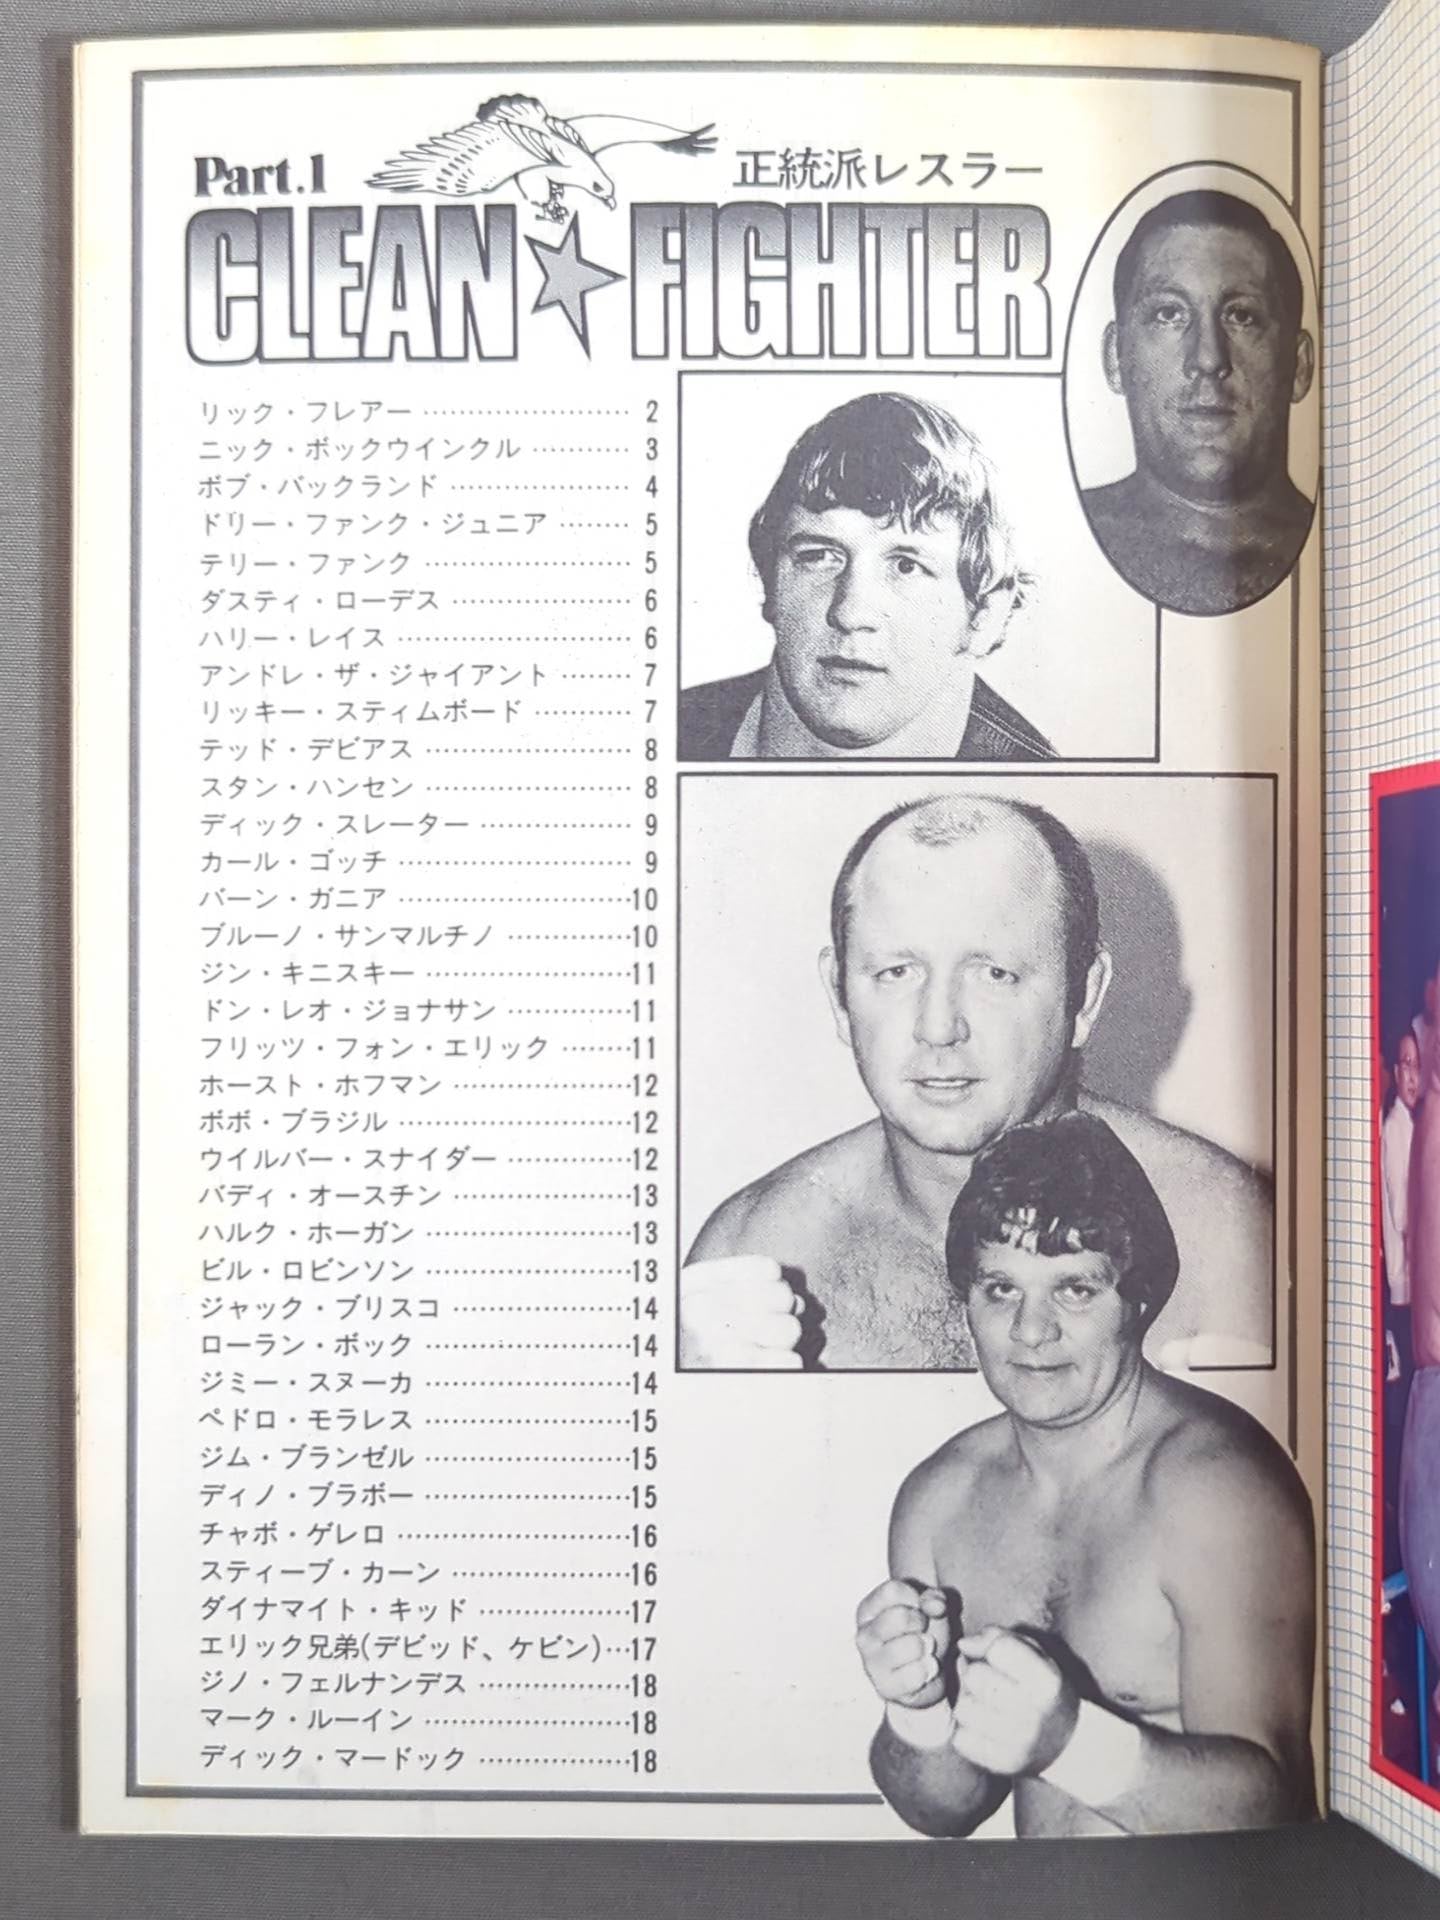 Part.1
正統派レスラー
CLEAN★FIGHTER
リック・フレアー ……………………… 2
ニック・ボックウインクル ………… 3
ボブ・バックランド ………………… 4
ドリー・ファンク・ジュニア ……… 5
テリー・ファンク …………………… 5
ダスティ・ローデス ………………… 6
ハリー・レイス ……………………… 6
アンドレ・ザ・ジャイアント ……… 7
リッキー・スティムボード ………… 7
テッド・デビアス …………………… 8
スタン・ハンセン …………………… 8
ディック・スレーター ……………… 9
カール・ゴッチ ……………………… 9
バーン・ガニア ………………………10
ブルーノ・サンマルチノ ……………10
ジン・キニスキー ……………………11
ドン・レオ・ジョナサン ……………11
フリッツ・フォン・エリック ………11
ホースト・ホフマン …………………12
ボボ・ブラジル ………………………12
ウイルバー・スナイダー ……………12
バディ・オースチン …………………13
ハルク・ホーガン ……………………13
ビル・ロビンソン ……………………13
ジャック・ブリスコ …………………14
ローラン・ボック ……………………14
ジミー・スヌーカ ……………………14
ペドロ・モラレス ……………………15
ジム・ブランゼル ……………………15
ディノ・ブラボー ……………………15
チャボ・ゲレロ ………………………16
スティーブ・カーン …………………16
ダイナマイト・キッド ………………17
エリック兄弟(デビッド、ケビン)…17
ジノ・フェルナンデス ………………18
マーク・ルーイン ……………………18
ディック・マードック ………………18